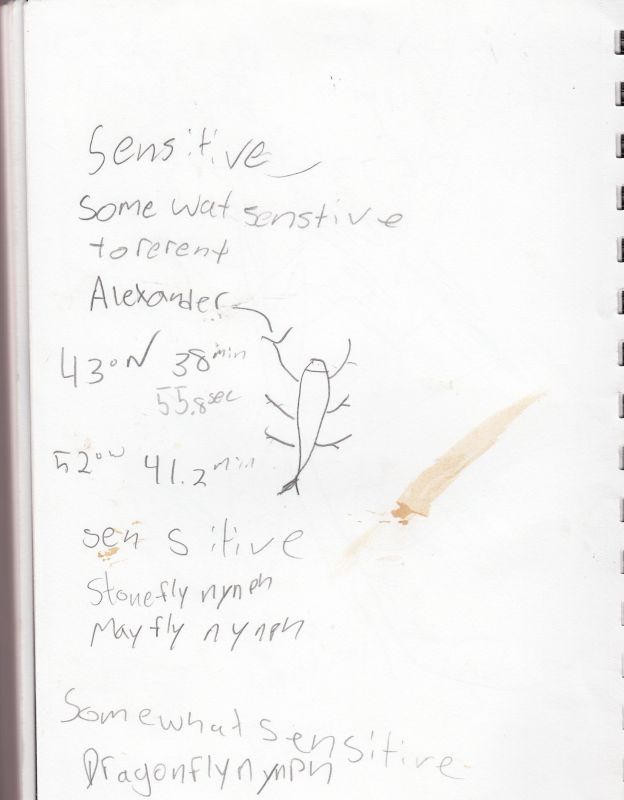 Sensitive
Some wat senstive
torerent
Alexander
43°N 38 min
55.8 sec
52°W 41.2 min
sensitive
Stonefly nynph
Mayfly nynph
Somewhat sensitive
Dragonfly nynph